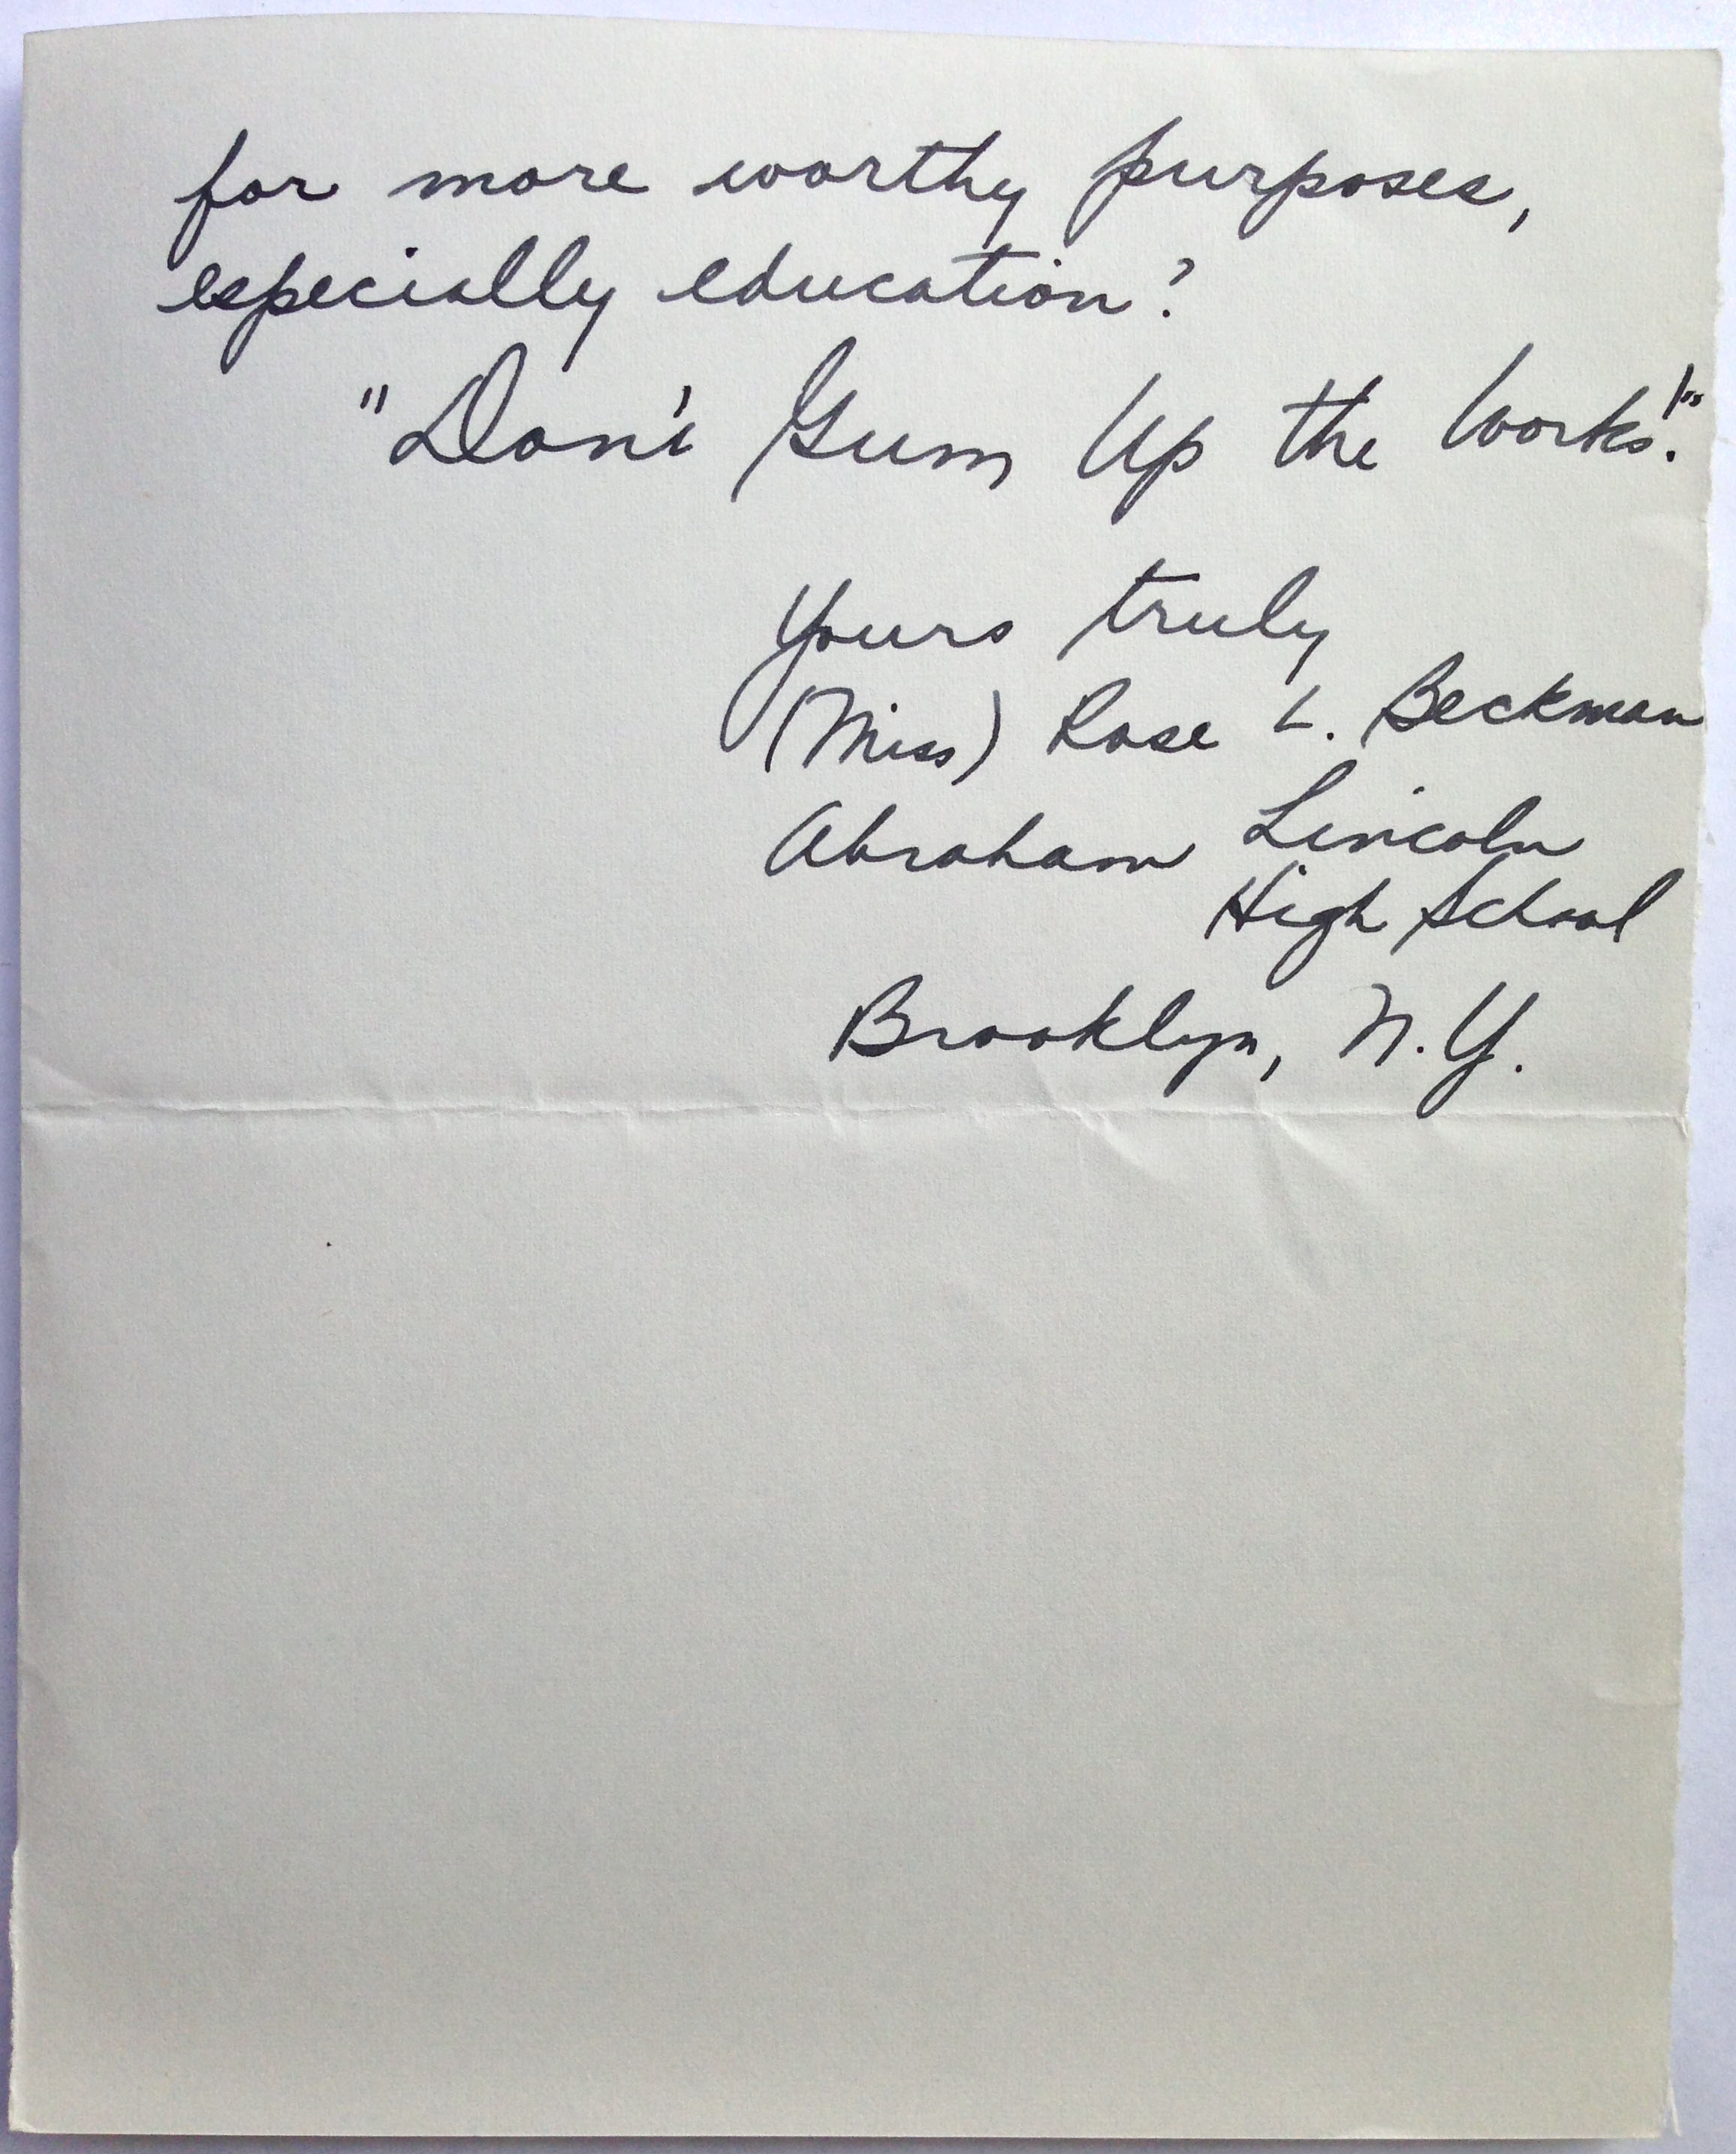 for more worthy purposes,
especially education?
"Don't Gum Up the Works!"
Yours truly
(Miss) Rose L. Beckman
Abraham Lincoln
High School
Brooklyn, N.Y.